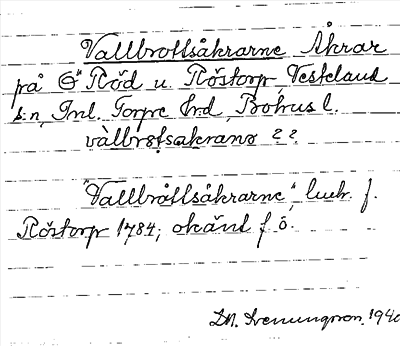 Vallbrottsåkrarne Åkrar
på Ö Röd u. Röstorp, Vesteland
s:n, Inl. Torpe hrd, Bohus l.
vàlbrotsakrano ??
"Vallbråttsåkrarne", luck f.
Röstorp 1784; okänt f. ö.
D.N. Svenungsson. 1940